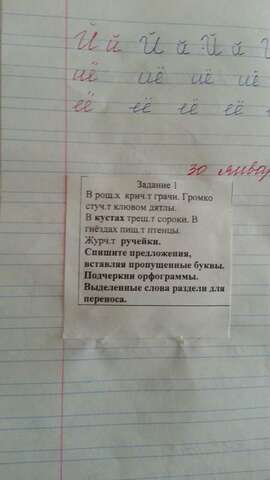 Й й Й й Й й
цё цё цё цё
её её её её
30 январ
Задание 1
В рощ.х крич.т грачи. Громко
стуч.т клювом дятлы.
В кустах трещ.т сороки. В
гнёздах пищ.т птенцы.
Журч.т ручейки.
Спишите предложения,
вставляя пропущенные буквы.
Подчеркни орфограммы.
Выделенные слова раздели для
переноса.